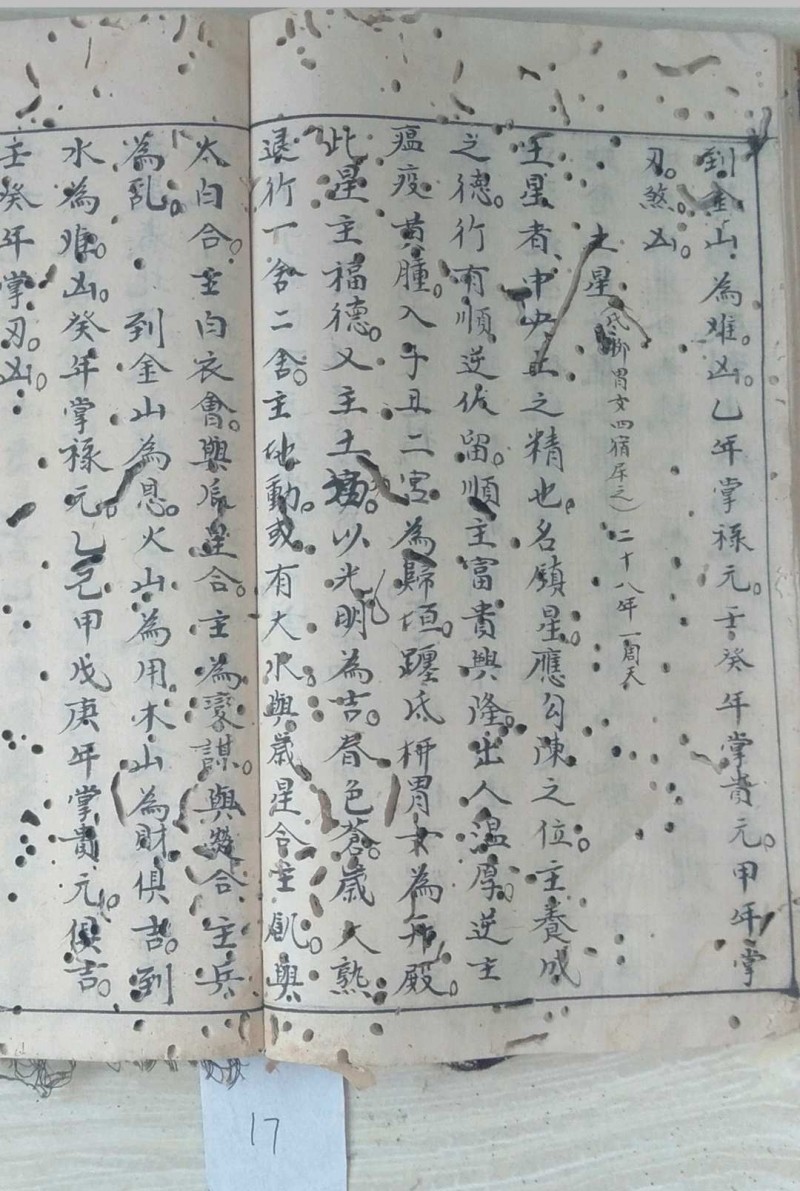 到金山為难。凶。乙年掌祿元。壬癸年掌貴元。甲年掌
刃。煞。凶。
土星（氐柳胃女四宿屬之）二十八年一周天
土星者。中央土之精也。名鎮星。應勾陳之位。主養成
之德。行有順逆伏留。順主富貴興隆。出人溫厚。逆主
瘟疫黃腫。入子丑二宮為歸垣。躔氐柳胃女為升殿。
此星主福德。又主土。以光明為吉。春色蒼。歲大熟
退行一舍二舍。主地動。或有大水。與歲星合主飢。與
太白合。主白衣會。與辰星合。主為變謀。與合主兵
為乱。到金山為恩。火山為用。木山為財俱吉。到
水為难。凶。癸年掌祿元。乙己甲戊庚年掌貴元。俱吉。
壬癸年掌刃。凶。
17